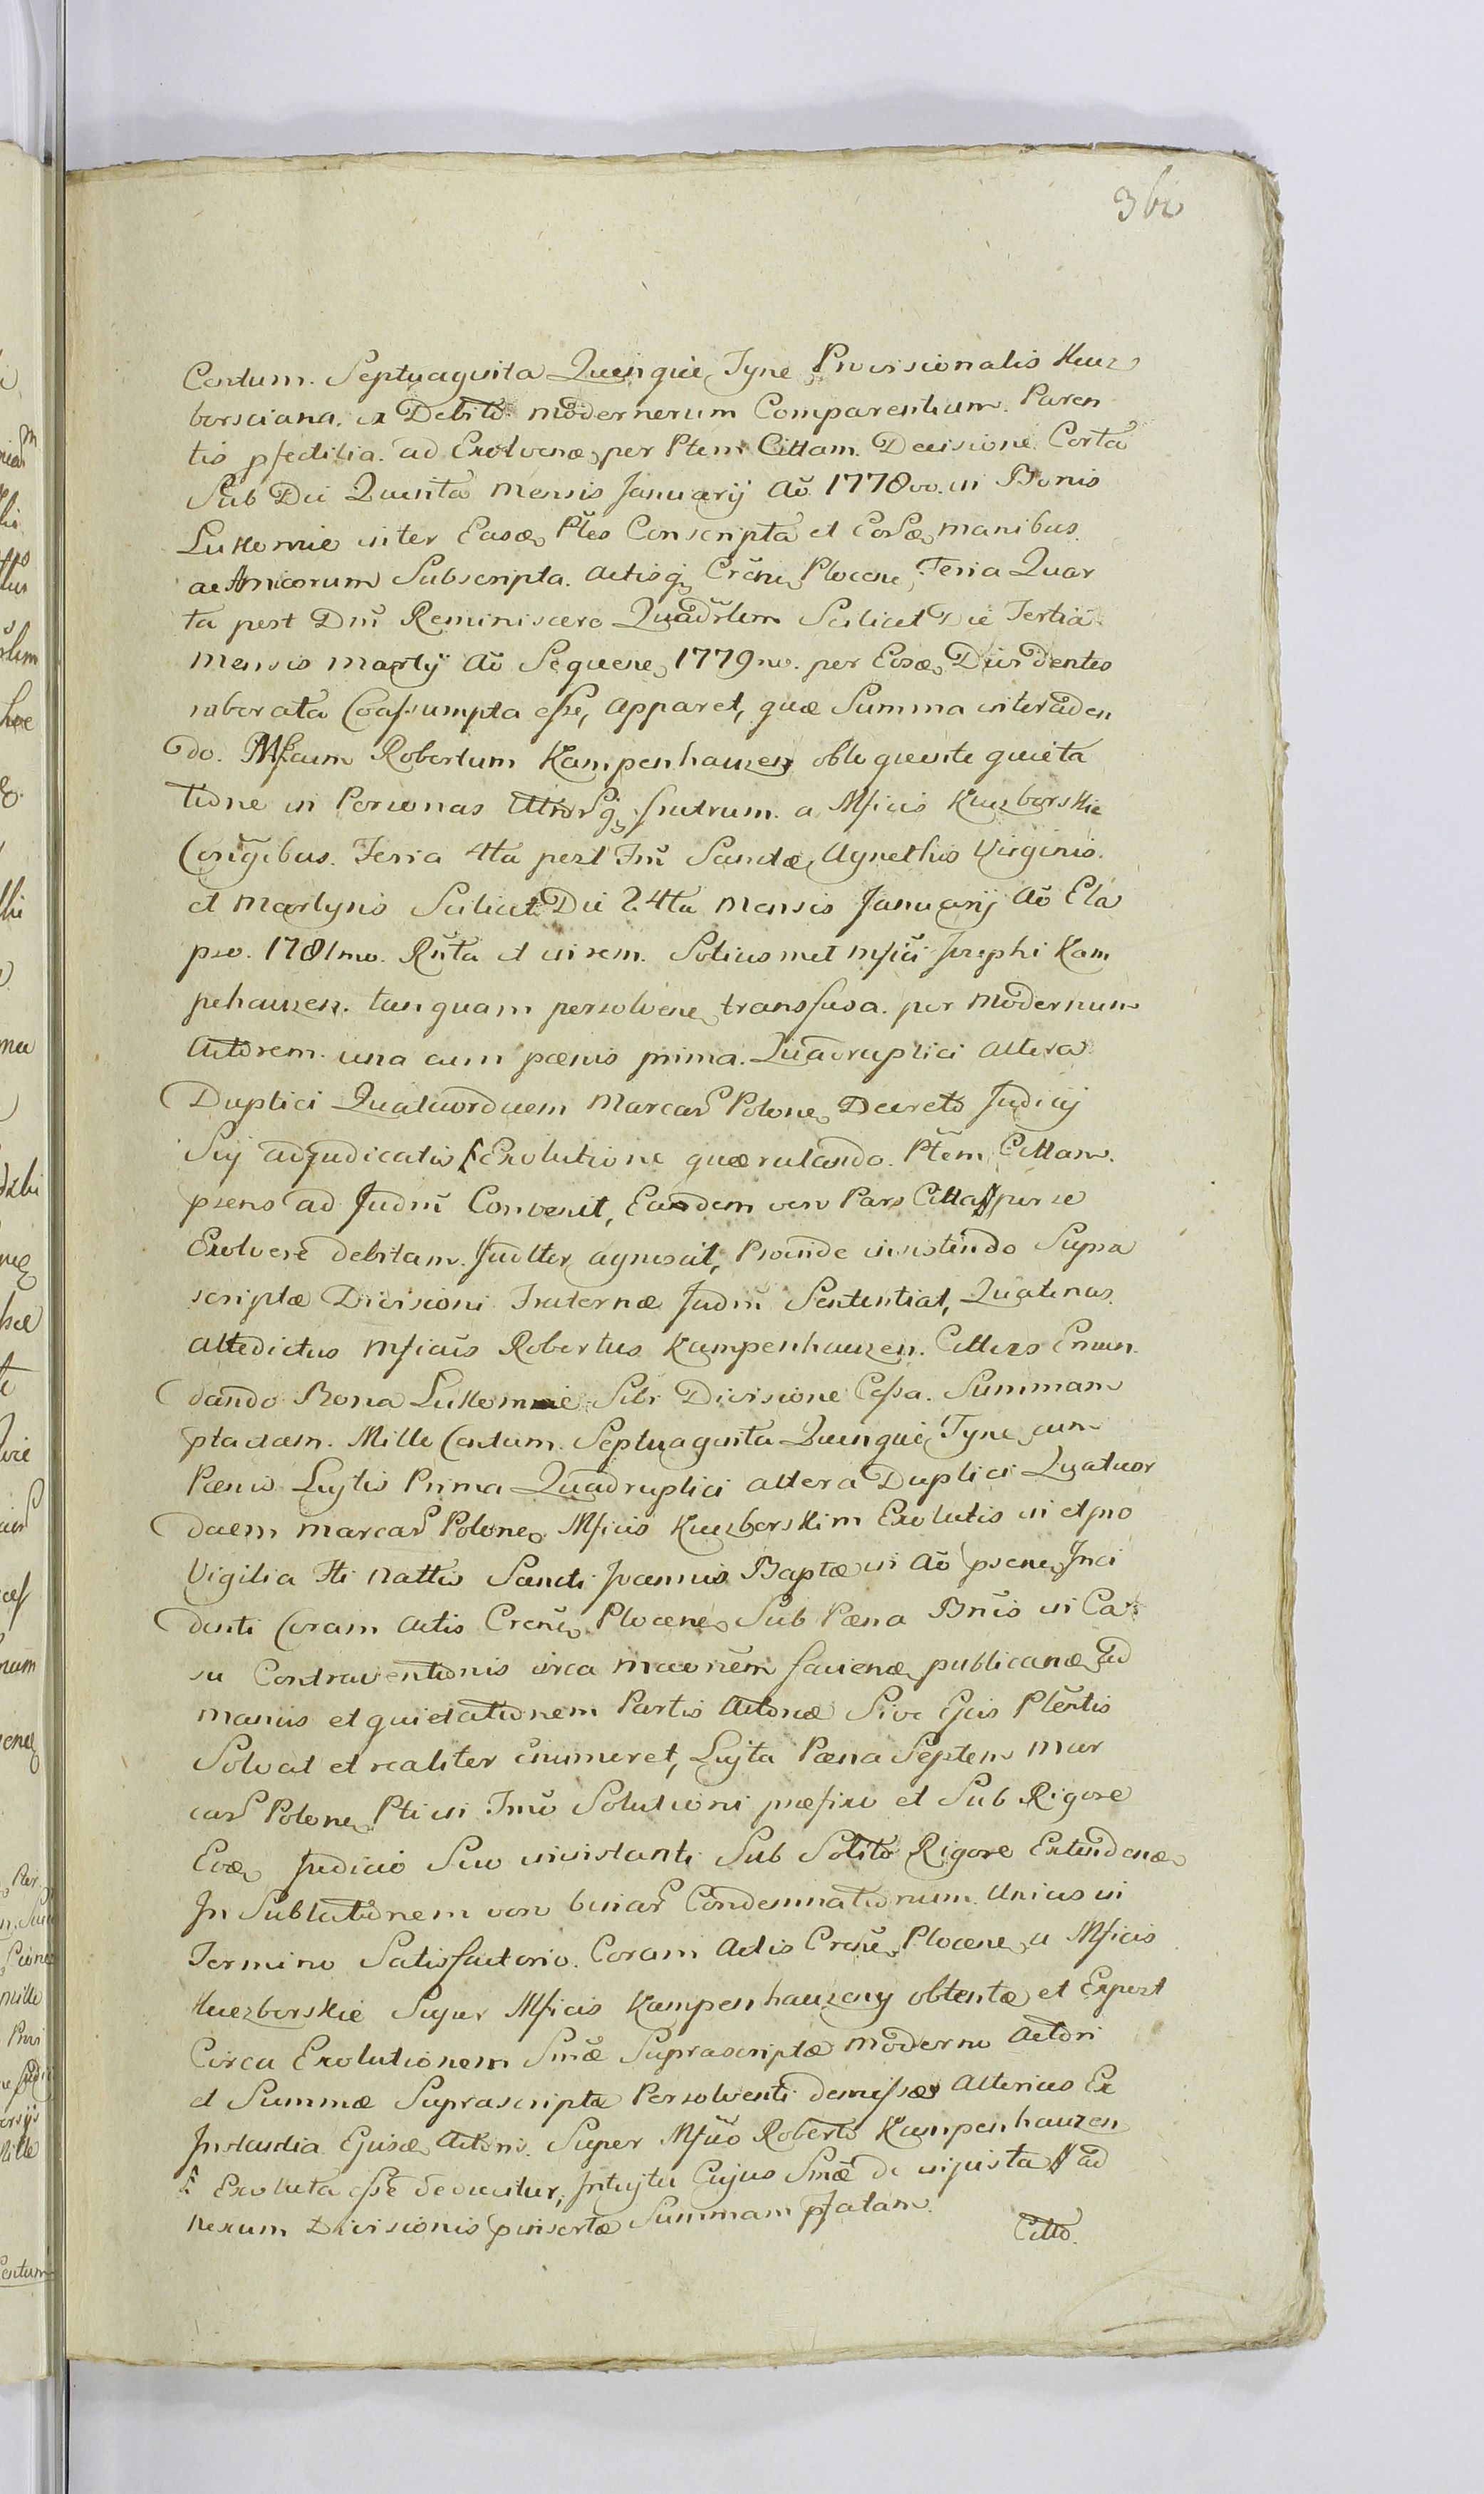 Centum. Septuaginta Quinque Tyne Provisionalis Kucz
borsciana. ex Debito modernorum Comparentium. Paren
tis ad Exolvenæ per Ptem Cittam. Decisione Certa
Sub Die Quinta Mensis Januarij Aõ 1778vo. in Bonis
Lukomie inter Easæ Ptes Conscripta et Eorsæ manibus
ac Amicorum Subscripta. Actisq Crẽne Plocene, Feria Quar
ta post Dnĩ Reminiscere Quadrlem Scilicet Die Tertia
Mensis Martij Aõ Sequene 1779no. per Eosæ Dividentes
roborata Coassumpta esse, apparet, quæ Summa interceden
do. Mficum Robertum Kampenhauzen obloquente quieta
tione in Personas Utrorsq fratrum. a Mficis Kuczborskie
Conĩgibus. Feria 4ta post Fm̃ Sanctæ Agnethis Virginis.
et Martyris Scilicet Die 24ta Mensis Januarij Aõ Ela
pso. 1781mo. Rñta et in rem. Solius met Mfici Josephi Kam
pehauzen. tanquam persolvene transfusa. per Modernum
Actorem. una cum pœnis prima. Quadruplici altera
Duplici Quatuordecem Marcar Polone Decreto Judicij
Sui adjudicatis Exolutione quærulando. Ptẽm Cittam.
psens ad Judm̃ Convenit, Eandem vero Pars Citta per se
Exolvere debitam. Judlter agnoscit, Proinde insistendo Supra
scriptæ Divisioni Fraternæ Judm̃ Sententiat, Quatenus
Altedictus Mficus Robertus Kampenhauzen. Cittus Emun
dando Bona Lukomie Sibi Divisione Cessa. Summam
ptactam. Mille Centum. Septuaginta Quinque Tyne cum
Pœnis Luytis Prima Quadruplici altera Duplici Quatuor
decem marcar Polone Mficis Kuczborskim Exolutis in et pro
Vigilia Fti nattis Sancti Joannis Baptæ in Aõ psene Inci
denti Coram Actis Crẽne Plocene Sub Pœna Bnĩs in Ca
su Contraventionis circa faciene publicanæ ad
manus et quietationem Partis Actoreæ Sive Ejus Plẽntis
Solvat et realiter enumeret, Luyta Pœna Septem Mar
car Polone Pti in Tmõ Solutioni præfixo et Sub Rigore
Eoæ Judicio Suo insistanti Sub Solito Rigore Extendenæ
In Sublationem vero binar Condemnationum. Unius in
Termino Satisfactorio. Coram Actis Crẽne Plocene a Mficis
Kuczborskie Super Mficis Kampenhauzeny obtentæ et Expost
Circa Exolutionem Sm̃æ Suprascriptæ Moderno Actori
et Summæ Suprascriptæ Persolventi demissæ Alterius Ex
Instantia Ejusæ Actoris. Super Mfico Roberto Kampenhauzen
Exoluta esse deducitur, Intuytu Cujus Sm̃æ de injusta ad
nexum Divisionis pinsertæ Summam pfatam.
Citto.